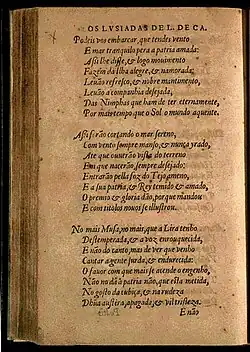 OS LVSIADAS DE L. DE CA.
Podeis vos embarcar, que tendes vento
E mar tranquilo pera a patria amada:
Aſsi lhe diſſe, & logo mouimento
Fazem da Ilha alegre, & namorada:
Leuão refreſco, & nobre mantimento,
Leuão a companhia deſejada,
Das Nimphas que ham de ter eternamente,
Por mais tempo que o Sol o mundo aquente.
Aſsi forão cortando o mar ſereno,
Com vento ſempre manſo, & nunca yrado,
Ate que ouuerão viſta do terreno
Em que naceráo, ſempre deſejado:
Entrarão pella foz do Tejo ameno,
E a ſua patria, & Rey temido & amado,
O premio & gloria dão, porque mandou
E com titolos nouos ſe illuſtrou.
No mais Muſa, no mais, que a Lira tenho
Deſtemperada, & a voz enrouquecida,
E não do canto, mas de ver que venho
Cantar a gente ſurda, & endurecida:
O fauor com que mais ſe acende o engenho,
Não no dá a patria não, que eſta metida,
No goſto da cubiça, & na rudeza
Dhũa auſtera, apagada, & vil triſteza.
E não